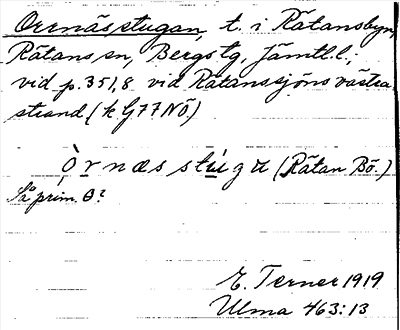 Orrnässtugan, t. i Rätansbyn,
Rätans sn, Bergs tg, Jämtl.l.;
vid p. 351,8 vid Rätanssjöns västra
strand (k G77NÖ)
Òrnæs stùgu (Rätan Bö.)
Så prim. Ɵ?
E. Terner 1919
Ulma 463:13